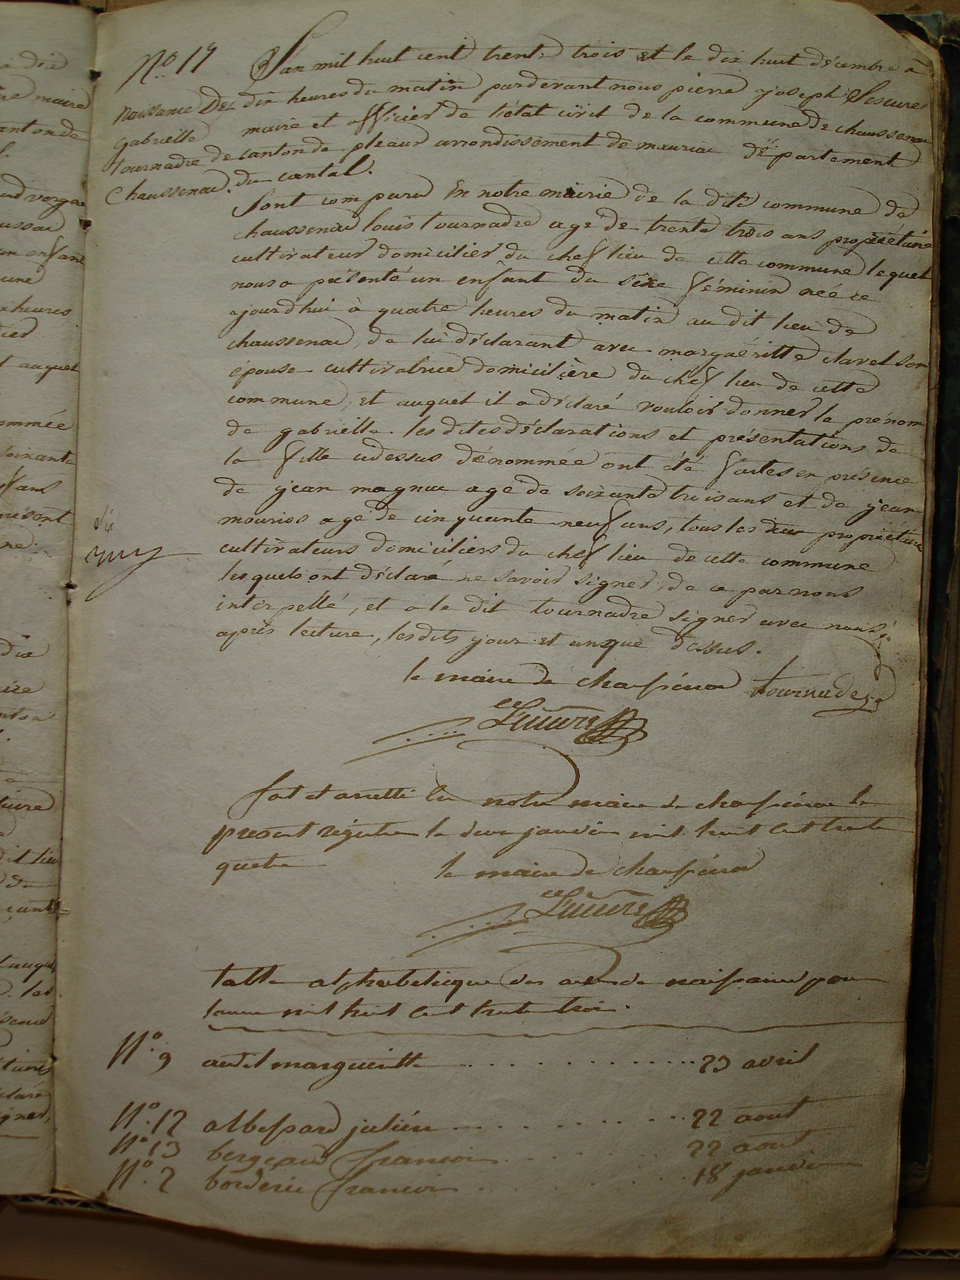 N.º 17
naissance De
gabrielle
tournadre de
Chaussenac.
L'an mil huit cent trente trois et le dix huit décembre à
dix heures du matin pardevant nous pierre joseph
maire et officier de l'état civil de la commune de chaussenac
canton de pleaux arrondissement de mauriac département
du cantal.
Sont comparu En notre mairie de la dite commune de
chaussenac louis tournadre age de trente trois ans propriétaire
cultivateur domicilier du chef lieu de cette commune lequel
nous a présenté un enfant du sexe féminin née ce
ajourdhui à quatre heures du matin au dit lieu de
chaussenac, de lui déclarant avec margueritte clavel son
épouse cultivatrice domicilière du chef lieu de cette
commune, et auquel il a déclaré vouloir donner le prénom
de gabrielle. les dites déclarations et présentations de
la fille cidessus dénommée ont été faites en présence
de jean magnac age de soixante trois ans et de jean
mourios age de cinquante neuf ans, tous les deux propriétaire
cultivateurs domiciliers du chef lieu de cette commune
lesquels ont déclaré ne savoir signer, de ce par nous
interpellé, et a le dit tournadre signer avec nous
après lecture, les dits jour et an que dessus.
le maire de chaussenac tournadre
fat et arretté en notre mairie de chaussenac le
present régistre le deux janvier mil huit cent trente
quatre
le maire de chaussenac
table alphabetique des actes de naissance pour
lannee mil huit cent trente trois.
N.º 9 margueritte .......... 23 avril
N.º 12 albessard julien .......... 22 aout
N.º 13 bergeaud francois .......... 22 aout
N.º 2 borderie francois .......... 18 janvier